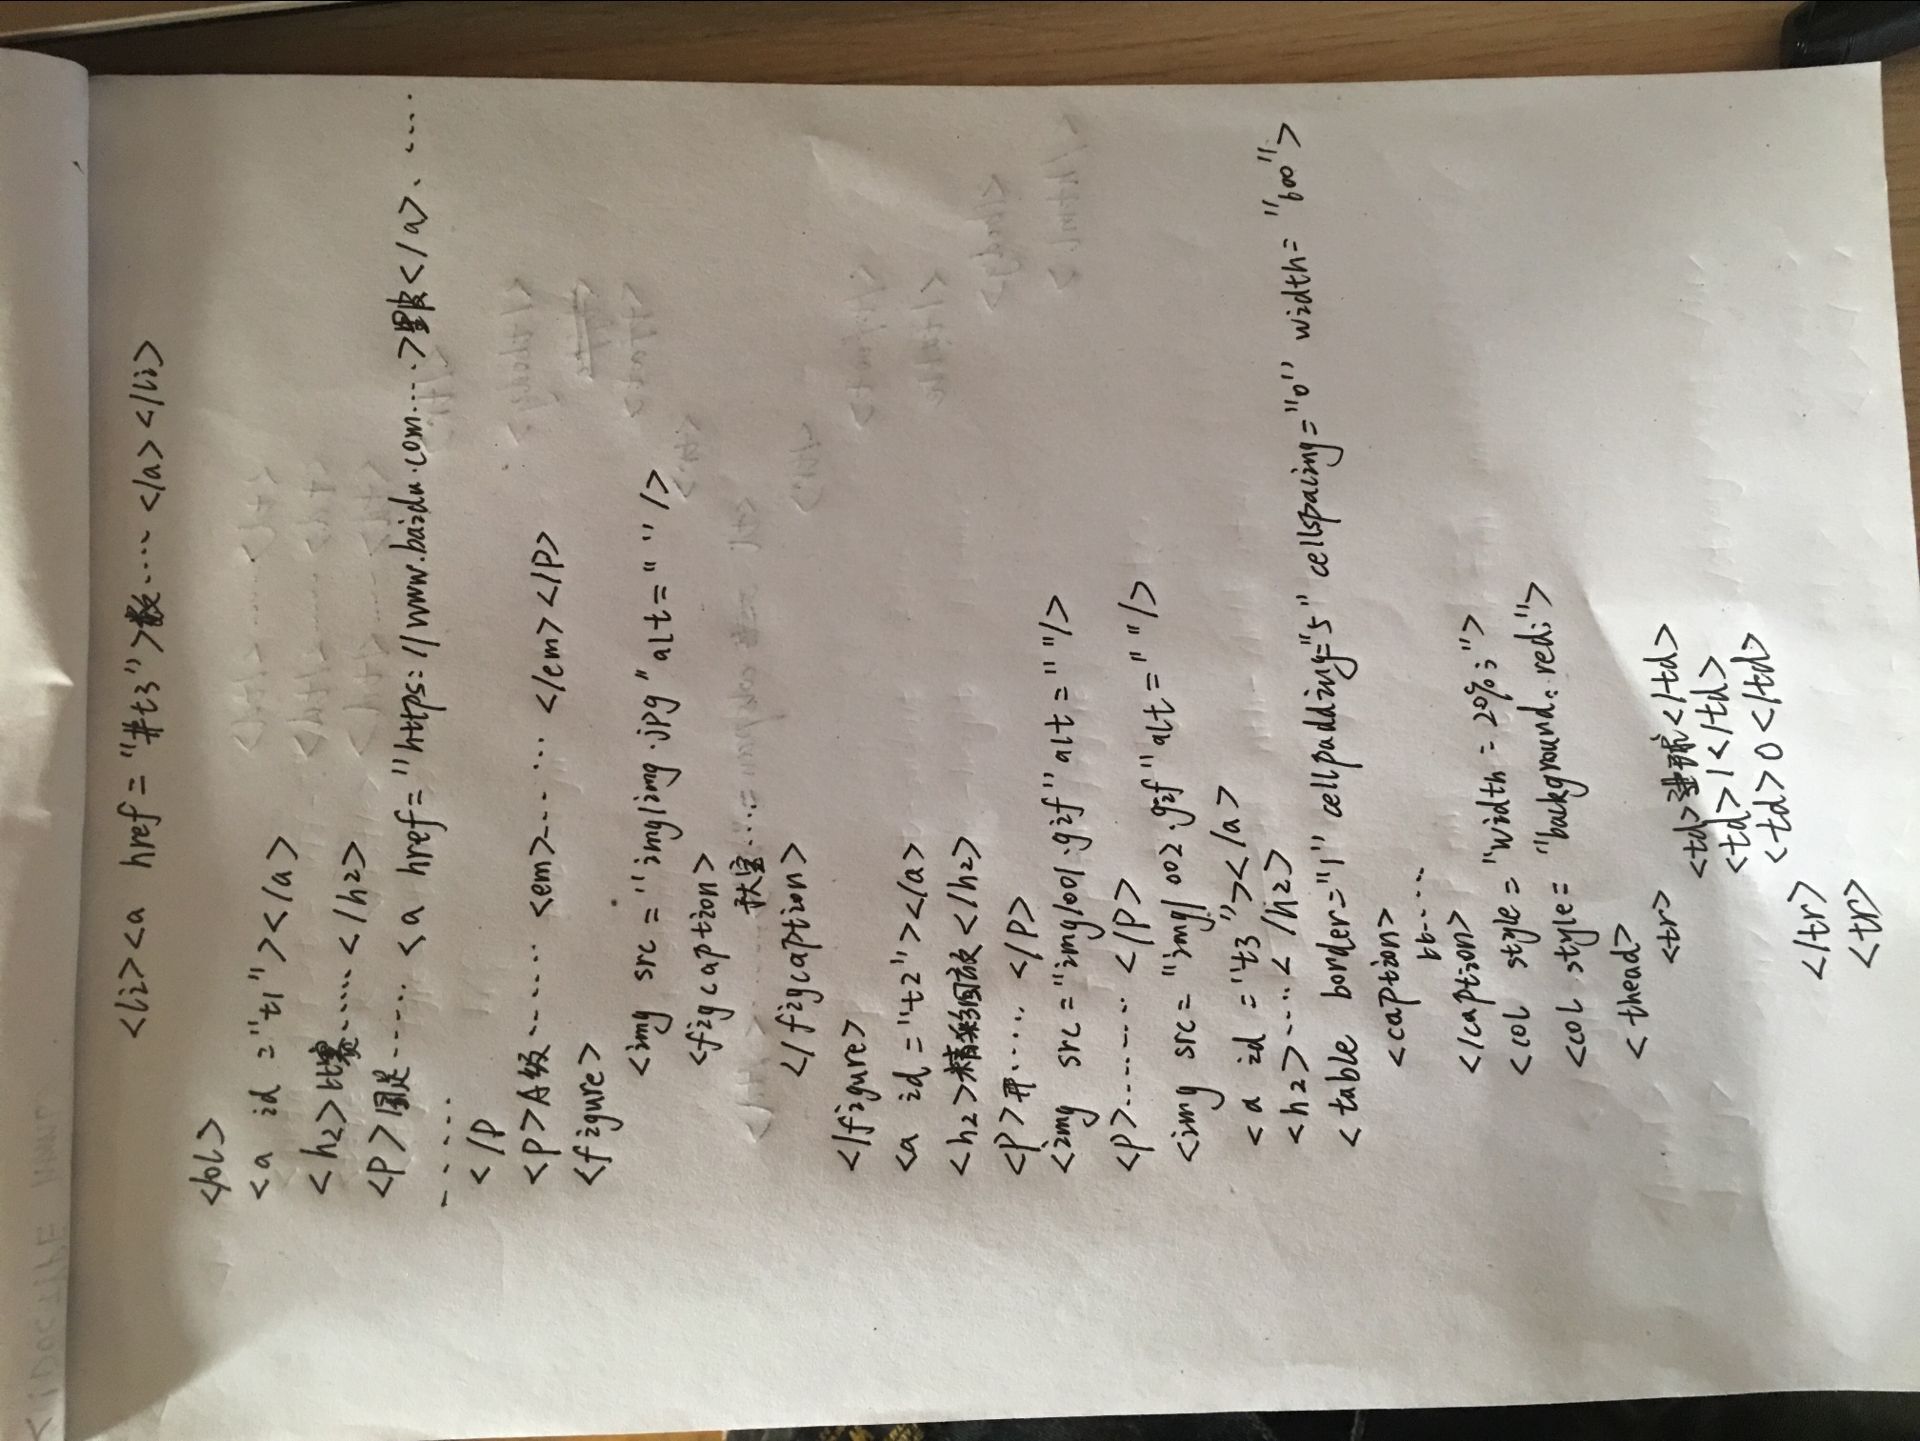 <li><a href="#t3">数……</a></li>
</ol>
<a id="t1"></a>
<h2>比赛……</h2>
<P>国足…… <a href="https://www.baidu.com……>里皮</a>……
……
</P
<P>A级…… <em>…… </em></P>
<figure>
<img src="img/img.jpg"alt=""/>
<figcaption>
……
</figcaption>
</figure>
<a id="t2"></a>
<h2>精彩回放</h2>
<P>开…… </P>
<img src="img/001.gif"alt=""/>
<P>…… </P>
<img src="img/002.gif"alt=""/>
<a id="t3"></a>
<h2>……</h2>
<table border="1" cellpadding="5" cellspacing="0" width="600">
<caption>
bb……
</caption>
<col style="width=20%;">
<col style="background:red;">
<thead>
<tr>
<td>进球</td>
<td>1</td>
<td>0</td>
</tr>
<tr>